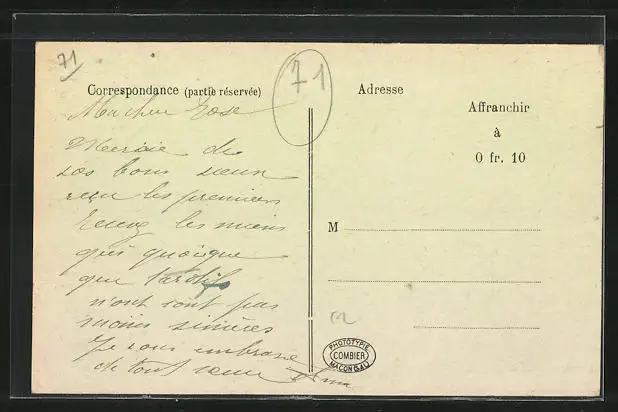 71
71
Correspondance (partie réservée)
Adresse
Affranchir
à
0 fr. 10
Ma chère Rose
Merçie de
vos bons vœux
reçu les premiers
recevez les miens
qui quoique
que tardifs
n'ont sont pas
moins sincères
Je vous embrasse
de tout cœur
M
PHOTOTYPIE
COMBIER
MACON (S&L)